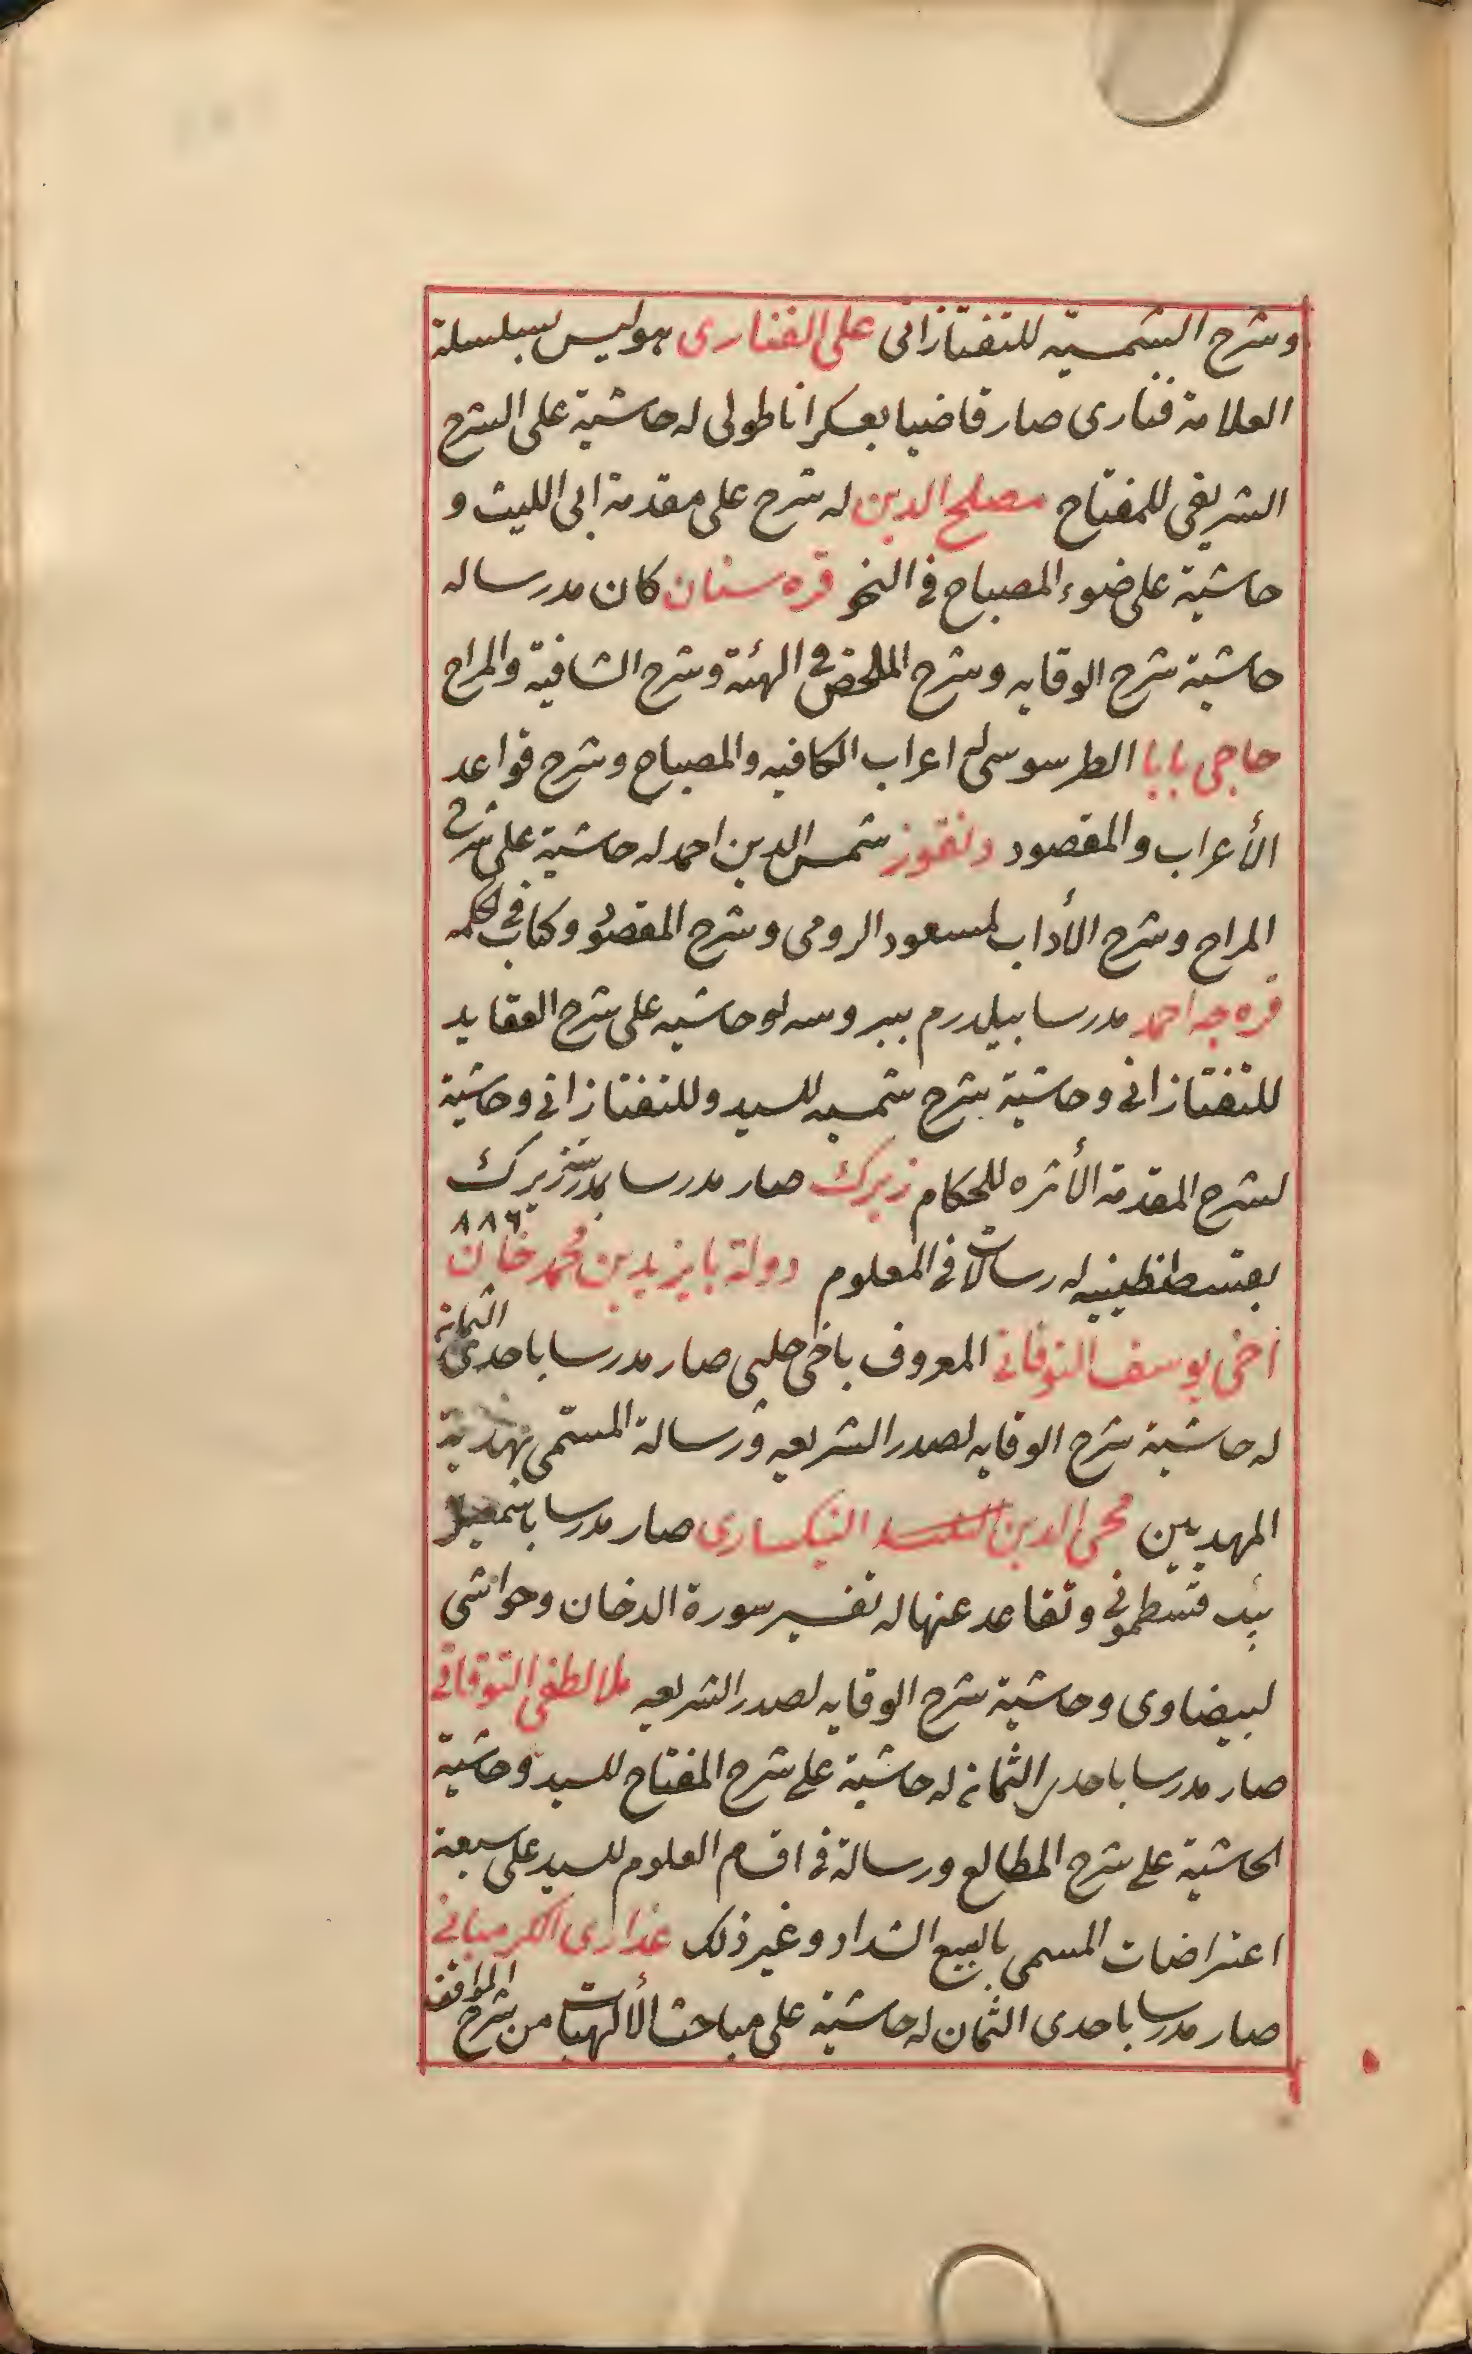 وشرح الشمسية للتفتازانى على الفنارى هو ليس بسلسلة
العلامة فنارى صار قاضيا بعسكر اناطولى له حاشية على الشرح
الشريفى للمفتاح مصلح الدين له شرح على مقدمة ابى الليث و
حاشية على ضوء المصباح فى النحو قره سنان كان مدرسا له
حاشية شرح الوقايه وشرح الملخص فى الهئة وشرح الشافية والمراح
حاجى بابا الطرسوسى له اعراب الكافيه والمصباح وشرح قواعد
الأعراب والمقصود دنقوز شمس الدين احمد له حاشية على شرح
المراح وشرح الأداب لمسعود الرومى وشرح المقصود وكتاب فى الحكمه
قره جه احمد مدرسا بيلدرم ببروسه له حاشيه على شرح العقايد
للتفتازانى وحاشية شرح شمسيه للسيد وللتفتازانى وحاشية
لشرح المقدمة الأثره للحكام زيرك صار مدرسا بمدرسة زيرك
بقسطنطينيه له رسالات فى المعلوم دولة بايزيد بن محمد خان ٨٨٦
اخى يوسف التوقاتى المعروف باخى چلبى صار مدرسا باحدى الثمانة
له حاشية شرح الوقايه لصدر الشريعه ورسالة المسمى بهدية
المهديين محى الدين النيكسارى صار مدرسا باسمعيل
بيك قسطمونى وتقاعد عنها له تفسير سورة الدخان وحواشى
لبيضاوى وحاشية شرح الوقايه لصدر الشريعه ملا لطفى التوقاتى
صار مدرسا باحدى الثمانة له حاشية على شرح المفتاح للسيد وحاشية
لحاشية على شرح المطالع ورسالة فى اقسام العلوم للسيد على سبعة
اعتراضات المسمى بالسبع الشداد وغير ذلك عذارى الكرميانى
صار مدرسا باحدى الثمان له حاشية على مباحث الألهيات من شرح المواقف